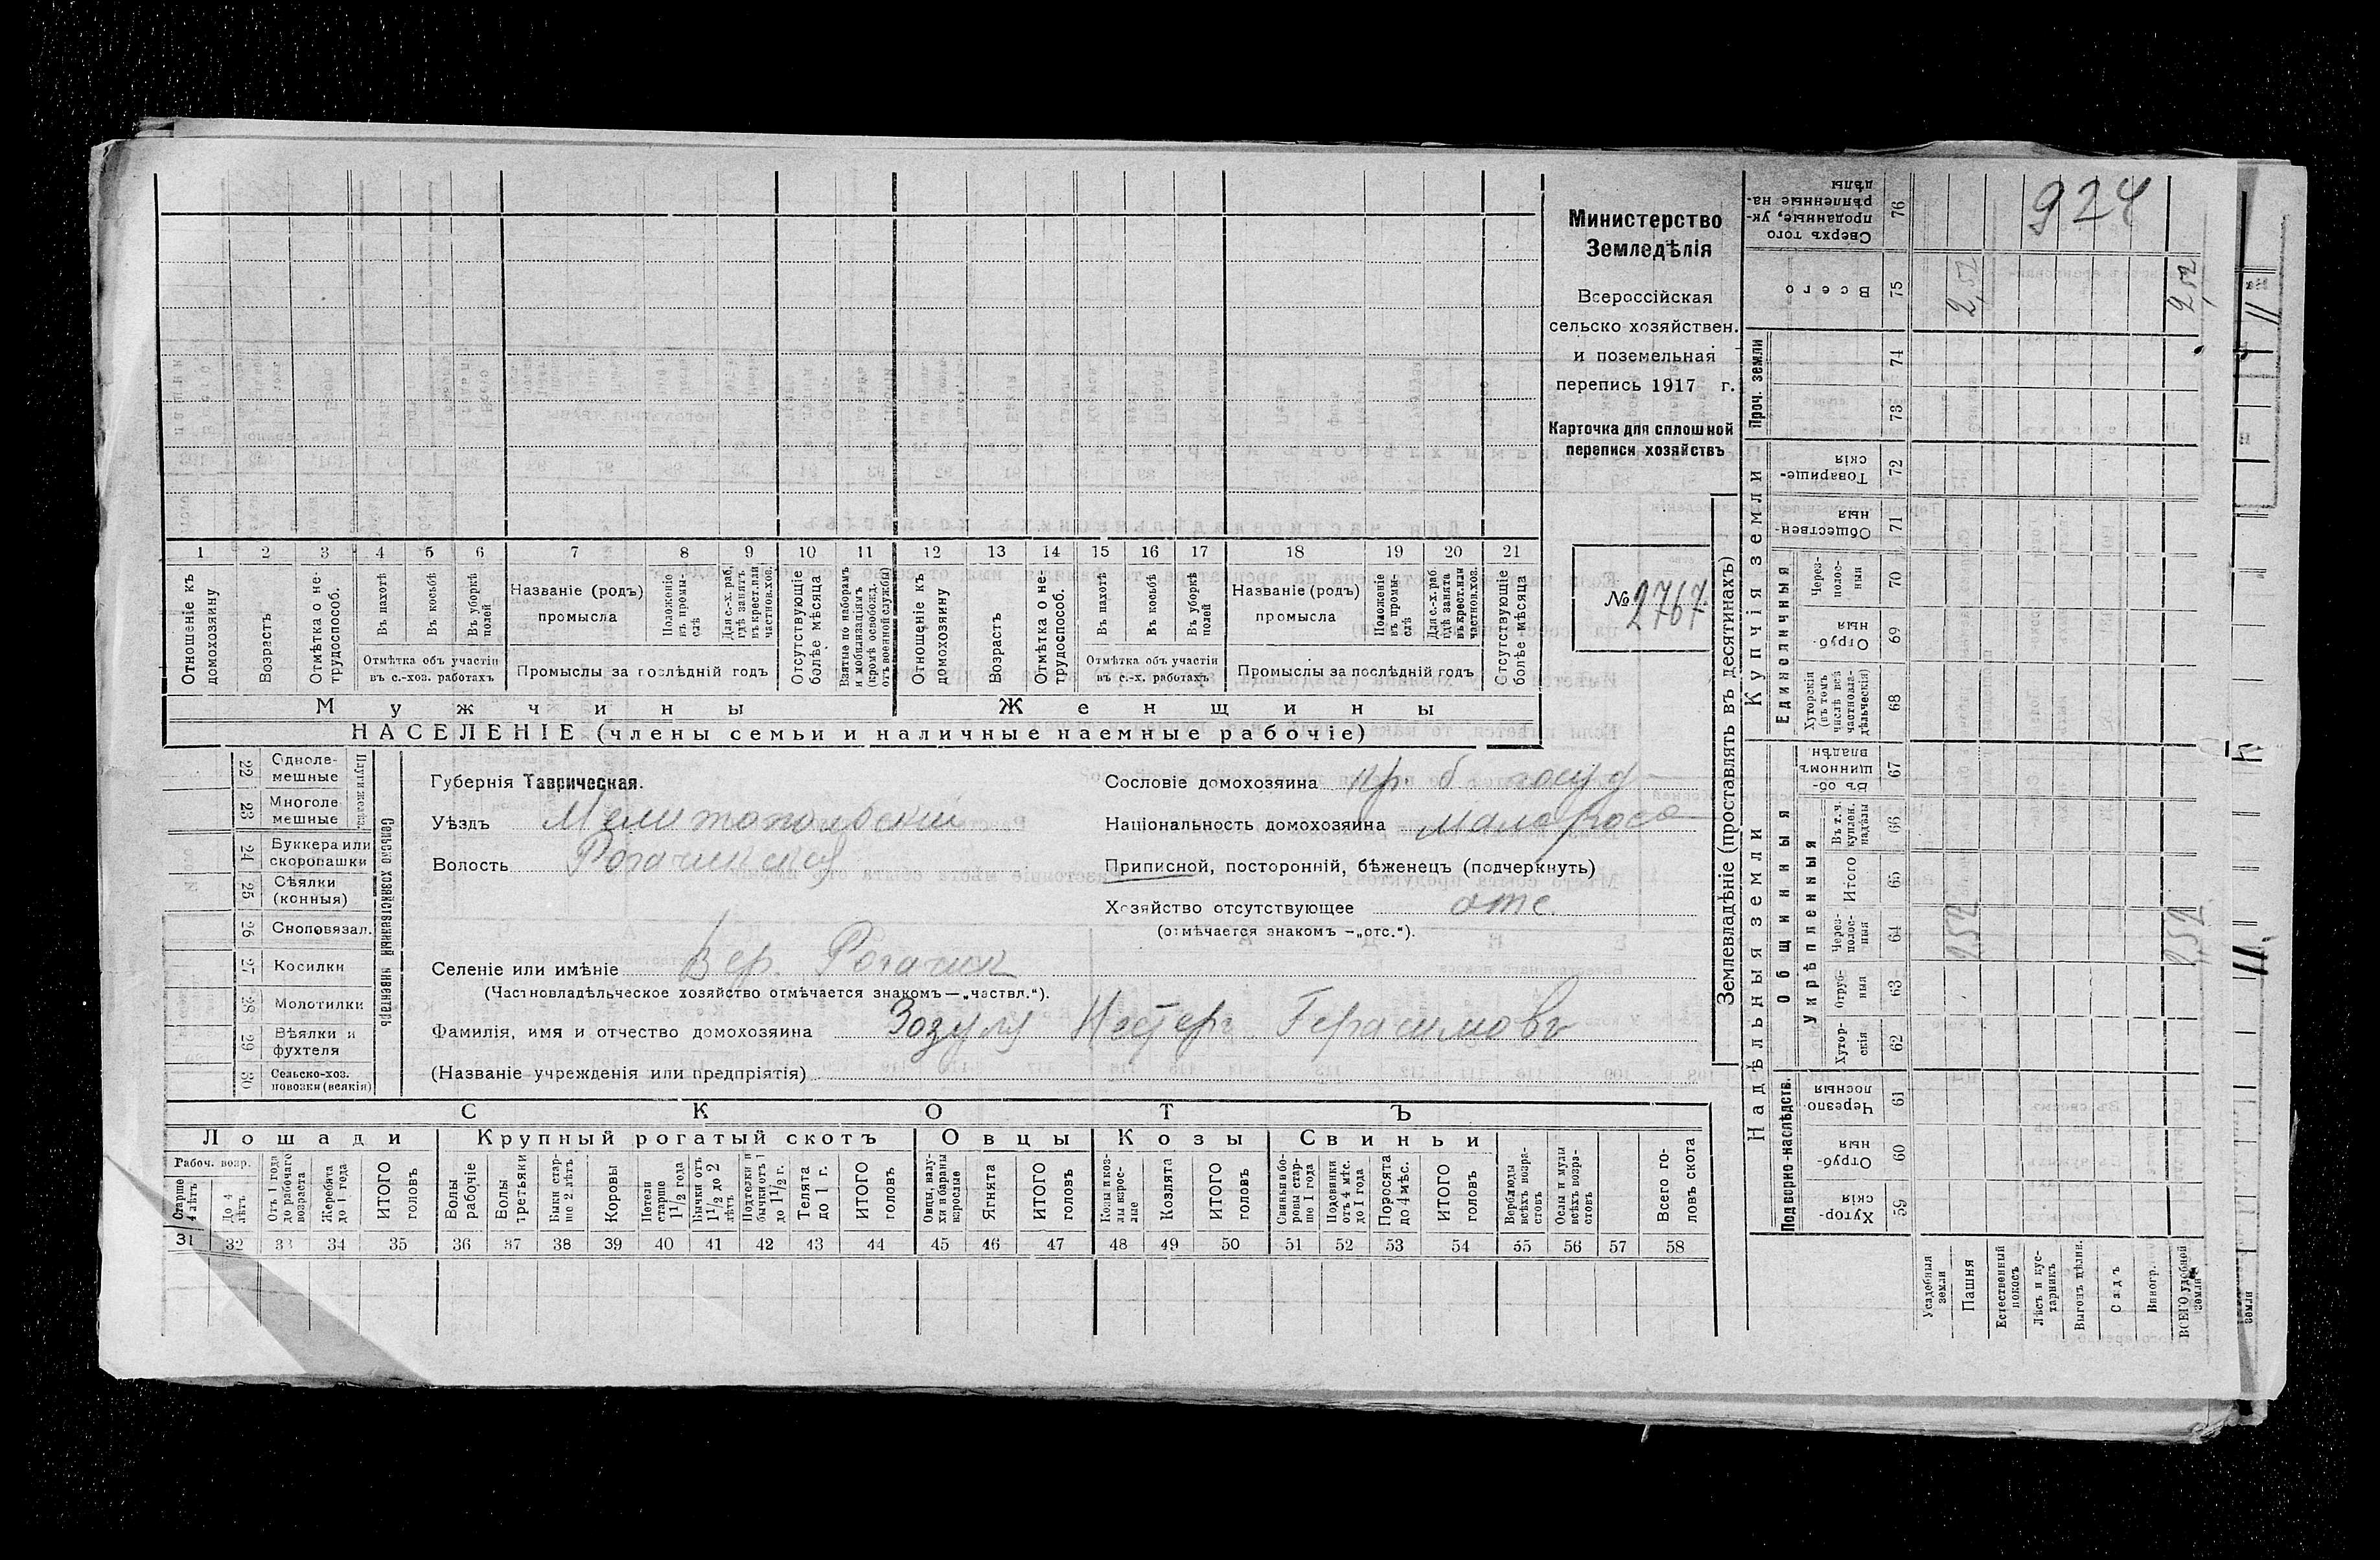 924
Министерство
Земледѣлія
Всероссійская
сельско-хозяйствен.
и поземельная
перепись 1917 г.
Карточка для сплошной
переписи хозяйствъ
№ 2767
1 2 3 4 5 6 7 8 9 10 11 12 13 14 15 16 17 18 19 20 21
Отношеніе къ домохозяину
Возрастъ
Отмѣтка о не-трудоспособ.
Въ пахотѣ
Въ косьбѣ
Въ уборкѣ полей
Отмѣтка объ участіи
въ с.-хоз. работахъ
Названіе (родъ)
промысла
Положеніе въ промыслѣ
Для с.-х. раб. гдѣ занятъ въ крест. или частнов. хоз.
Промыслы за послѣдній годъ
Отсутствующіе болѣе мѣсяца
Взятые по наборамъ и мобилизаціямъ (кромѣ освобожд. отъ военной службы)
Отношеніе къ домохозяину
Возрастъ
Отмѣтка о не-трудоспособ.
Въ пахотѣ
Въ косьбѣ
Въ уборкѣ полей
Отмѣтка объ участіи
въ с.-х. работахъ
Названіе (родъ)
промысла
Положеніе въ промыслѣ
Для с.-х. раб. гдѣ занята въ крест. или частнов. хоз.
Промыслы за послѣдній годъ
Отсутствующіе болѣе мѣсяца
Мужчины Женщины
НАСЕЛЕНІЕ (члены семьи и наличные наемные рабочіе)
Сельско хозяйственный инвентарь
Плуги желѣз.
22 Однолемешные
23 Многолемешные
24 Буккера или скоропашки
25 Сѣялки (конныя)
26 Сноповязал.
27 Косилки
28 Молотилки
29 Вѣялки и фухтеля
30 Сельско-хоз. повозки (всякія)
Губернія Таврическая.
Уѣздъ Мелитопольскій
Волость Рогачикская
Сословіе домохозяина кр. б госуд
Національность домохозяина малорос
Приписной, посторонній, бѣженецъ (подчеркнуть)
Хозяйство отсутствующее отс.
(отмѣчается знакомъ —„отс.“).
Селеніе или имѣніе Вер. Рогачик
(Частновладѣльческое хозяйство отмѣчается знакомъ—„частвл.“).
Фамилія, имя и отчество домохозяина Зозуля Нестеръ Герасимовъ
(Названіе учрежденія или предпріятія)
СКОТЪ
Лошади Крупный рогатый скотъ Овцы Козы Свиньи
Рабоч. возр.
Старше 4 лѣтъ
До 4 лѣтъ
Отъ 1 года до рабочаго возраста
Жеребята до 1 года
ИТОГО головъ
Волы рабочіе
Волы третьяки
Быки старше 2 лѣтъ
Коровы
Нетели старше 1½ года
Бычки отъ 1½ до 2 лѣтъ
Подтелки и бычки отъ 1 до 1½ г.
Телята до 1 г.
ИТОГО головъ
Овцы, валухи и бараны взрослые
Ягнята
ИТОГО головъ
Козы и козлы взрослые
Козлята
ИТОГО головъ
Свиньи и боровы старше 1 года
Подсвинки отъ 4 мѣс. до 1 года
Поросята до 4 мѣс.
ИТОГО головъ
Верблюды всѣхъ возрастовъ
Ослы и мулы всѣхъ возрастовъ
Всего головъ скота
31 32 33 34 35 36 37 38 39 40 41 42 43 44 45 46 47 48 49 50 51 52 53 54 55 56 57 58
Землевладѣніе (проставлять въ десятинахъ)
Надѣльныя земли
Купчія земли
Проч. земли
Подворно-наслѣдств.
Общинныя
Укрѣпленныя
Единоличныя
Сверхъ того проданные, укрѣпленные надѣлы 76
Всего 75 2,52 2,52
74
73
Товарищескія 72
Общественныя 71
Черезполосныя 70
Отрубныя 69
Хуторскія (въ томъ числѣ всѣ частновладѣльческія) 68
Въ общинномъ владѣн. 67
Въ т. ч. куплен. надѣлы 66
Итого 65
Черезполосныя 64 2,52 2,52
Отрубныя 63
Хуторскія 62
Черезполосныя 61
Отрубныя 60
Хуторскія 59
Усадебныя земли
Пашня
Естественный покосъ
Лѣсъ и кустарникъ
Выгонъ цѣлин.
Садъ
Виногр.
ВСЕГО удобной земли